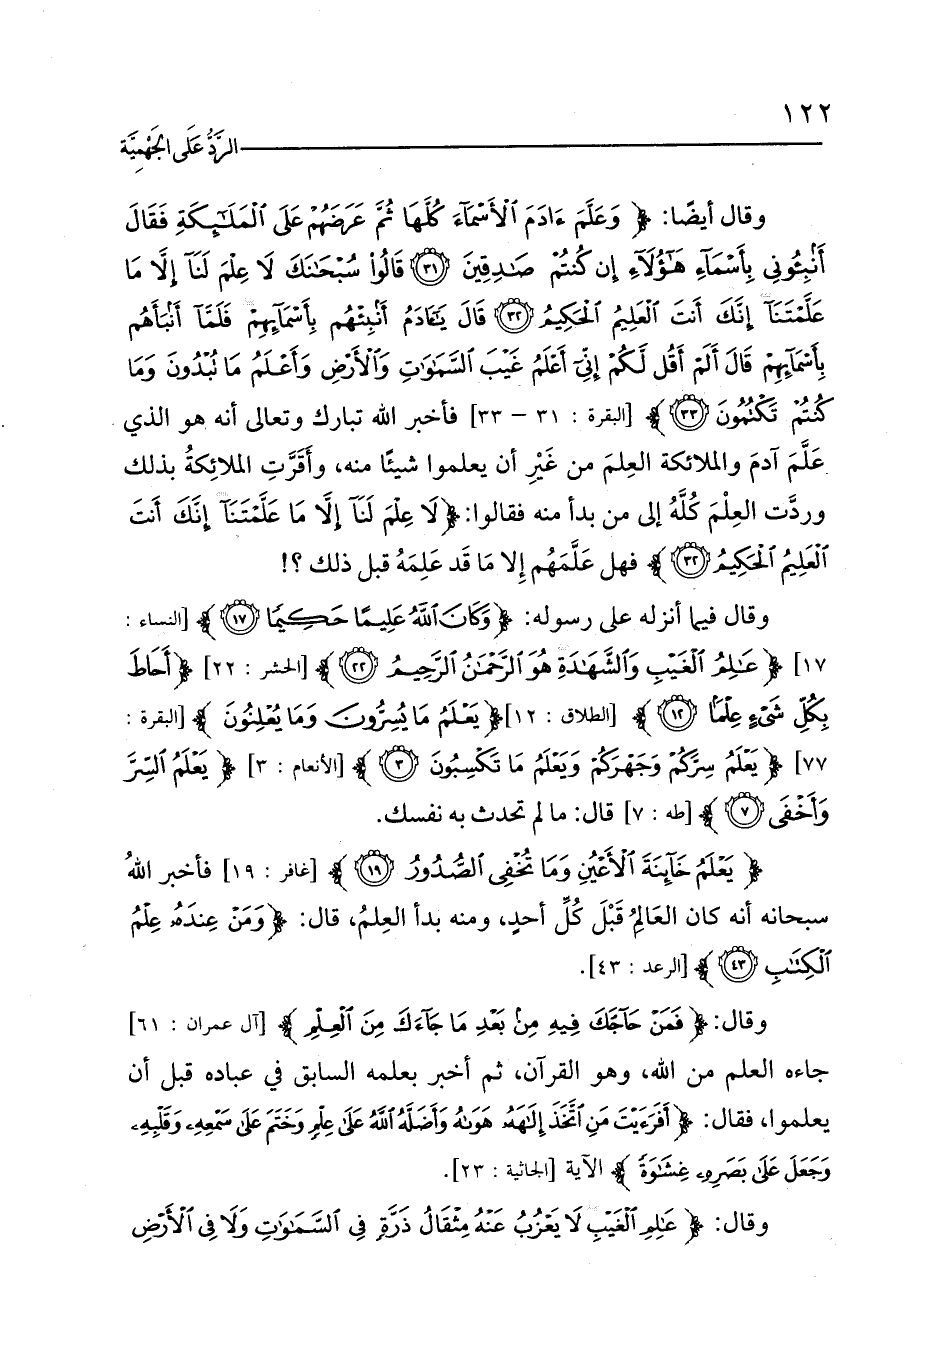 ١٢٢
الرَّدُّ عَلَى الجَهْمِيَّة
وقال أيضًا: ﴿ وَعَلَّمَ ءَادَمَ ٱلْأَسْمَآءَ كُلَّهَا ثُمَّ عَرَضَهُمْ عَلَى ٱلْمَلَـٰٓئِكَةِ فَقَالَ
أَنۢبِـُٔونِى بِأَسْمَآءِ هَـٰٓؤُلَآءِ إِن كُنتُمْ صَـٰدِقِينَ ٣١ قَالُوا۟ سُبْحَـٰنَكَ لَا عِلْمَ لَنَآ إِلَّا مَا
عَلَّمْتَنَآ إِنَّكَ أَنتَ ٱلْعَلِيمُ ٱلْحَكِيمُ ٣٢ قَالَ يَـٰٓـَٔادَمُ أَنۢبِئْهُم بِأَسْمَآئِهِمْ فَلَمَّآ أَنۢبَأَهُم
بِأَسْمَآئِهِمْ قَالَ أَلَمْ أَقُل لَّكُمْ إِنِّىٓ أَعْلَمُ غَيْبَ ٱلسَّمَـٰوَٰتِ وَٱلْأَرْضِ وَأَعْلَمُ مَا تُبْدُونَ وَمَا
كُنتُمْ تَكْتُمُونَ ٣٣ ﴾ [البقرة : ٣١ – ٣٣] فأخبر الله تبارك وتعالى أنه هو الذي
عَلَّمَ آدمَ والملائكة العِلمَ من غَيْرِ أن يعلموا شيئًا منه، وأقَرَّتِ الملائِكةُ بذلك
وردَّت العِلْمَ كُلَّهُ إلى من بدأ منه فقالوا: ﴿ لَا عِلْمَ لَنَآ إِلَّا مَا عَلَّمْتَنَآ إِنَّكَ أَنتَ
ٱلْعَلِيمُ ٱلْحَكِيمُ ٣٢ ﴾ فهل عَلَّمَهُم إلا مَا قَد عَلِمَهُ قبل ذلك ؟!
وقال فيما أنزله على رسوله: ﴿ وَكَانَ ٱللَّهُ عَلِيمًا حَكِيمًا ١٧ ﴾ [النساء :
١٧] ﴿ عَـٰلِمُ ٱلْغَيْبِ وَٱلشَّهَـٰدَةِ هُوَ ٱلرَّحْمَـٰنُ ٱلرَّحِيمُ ٢٢ ﴾ [الحشر : ٢٢] ﴿ أَحَاطَ
بِكُلِّ شَىْءٍ عِلْمًۢا ١٢ ﴾ [الطلاق : ١٢] ﴿ يَعْلَمُ مَا يُسِرُّونَ وَمَا يُعْلِنُونَ ﴾ [البقرة :
٧٧] ﴿ يَعْلَمُ سِرَّكُمْ وَجَهْرَكُمْ وَيَعْلَمُ مَا تَكْسِبُونَ ٣ ﴾ [الأنعام : ٣] ﴿ يَعْلَمُ ٱلسِّرَّ
وَأَخْفَى ٧ ﴾ [طه : ٧] قال: ما لم تحدث به نفسك.
﴿ يَعْلَمُ خَآئِنَةَ ٱلْأَعْيُنِ وَمَا تُخْفِى ٱلصُّدُورُ ١٩ ﴾ [غافر : ١٩] فأخبر اللهُ
سبحانه أنه كان العَالِمُ قَبْلَ كُلِّ أحدٍ، ومنه بدأ العِلمُ، قال: ﴿ وَمَنْ عِندَهُۥ عِلْمُ
ٱلْكِتَـٰبِ ٤٣ ﴾ [الرعد : ٤٣].
وقال: ﴿ فَمَنْ حَآجَّكَ فِيهِ مِنۢ بَعْدِ مَا جَآءَكَ مِنَ ٱلْعِلْمِ ﴾ [آل عمران : ٦١]
جاءه العلم من الله، وهو القرآن، ثم أخبر بعلمه السابق في عباده قبل أن
يعلموا، فقال: ﴿ أَفَرَءَيْتَ مَنِ ٱتَّخَذَ إِلَـٰهَهُۥ هَوَىٰهُ وَأَضَلَّهُ ٱللَّهُ عَلَىٰ عِلْمٍ وَخَتَمَ عَلَىٰ سَمْعِهِۦ وَقَلْبِهِۦ
وَجَعَلَ عَلَىٰ بَصَرِهِۦ غِشَـٰوَةً ﴾ الآية [الجاثية : ٢٣].
وقال: ﴿ عَـٰلِمِ ٱلْغَيْبِ لَا يَعْزُبُ عَنْهُ مِثْقَالُ ذَرَّةٍ فِى ٱلسَّمَـٰوَٰتِ وَلَا فِى ٱلْأَرْضِ